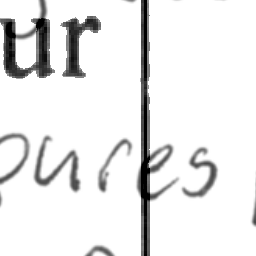 ur
oures